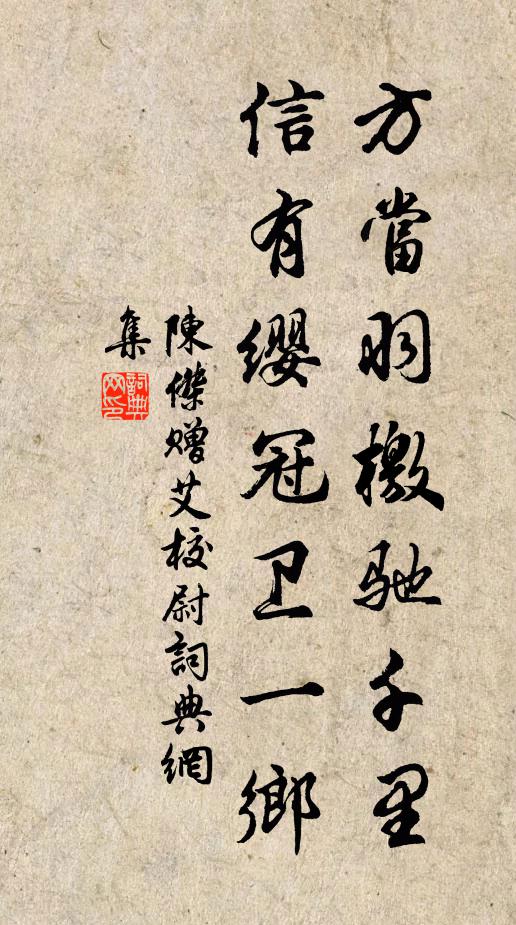 方當羽檄馳千里
信有纓冠卫一鄉
陳傑贈艾校尉詞典網
集
詞典网印